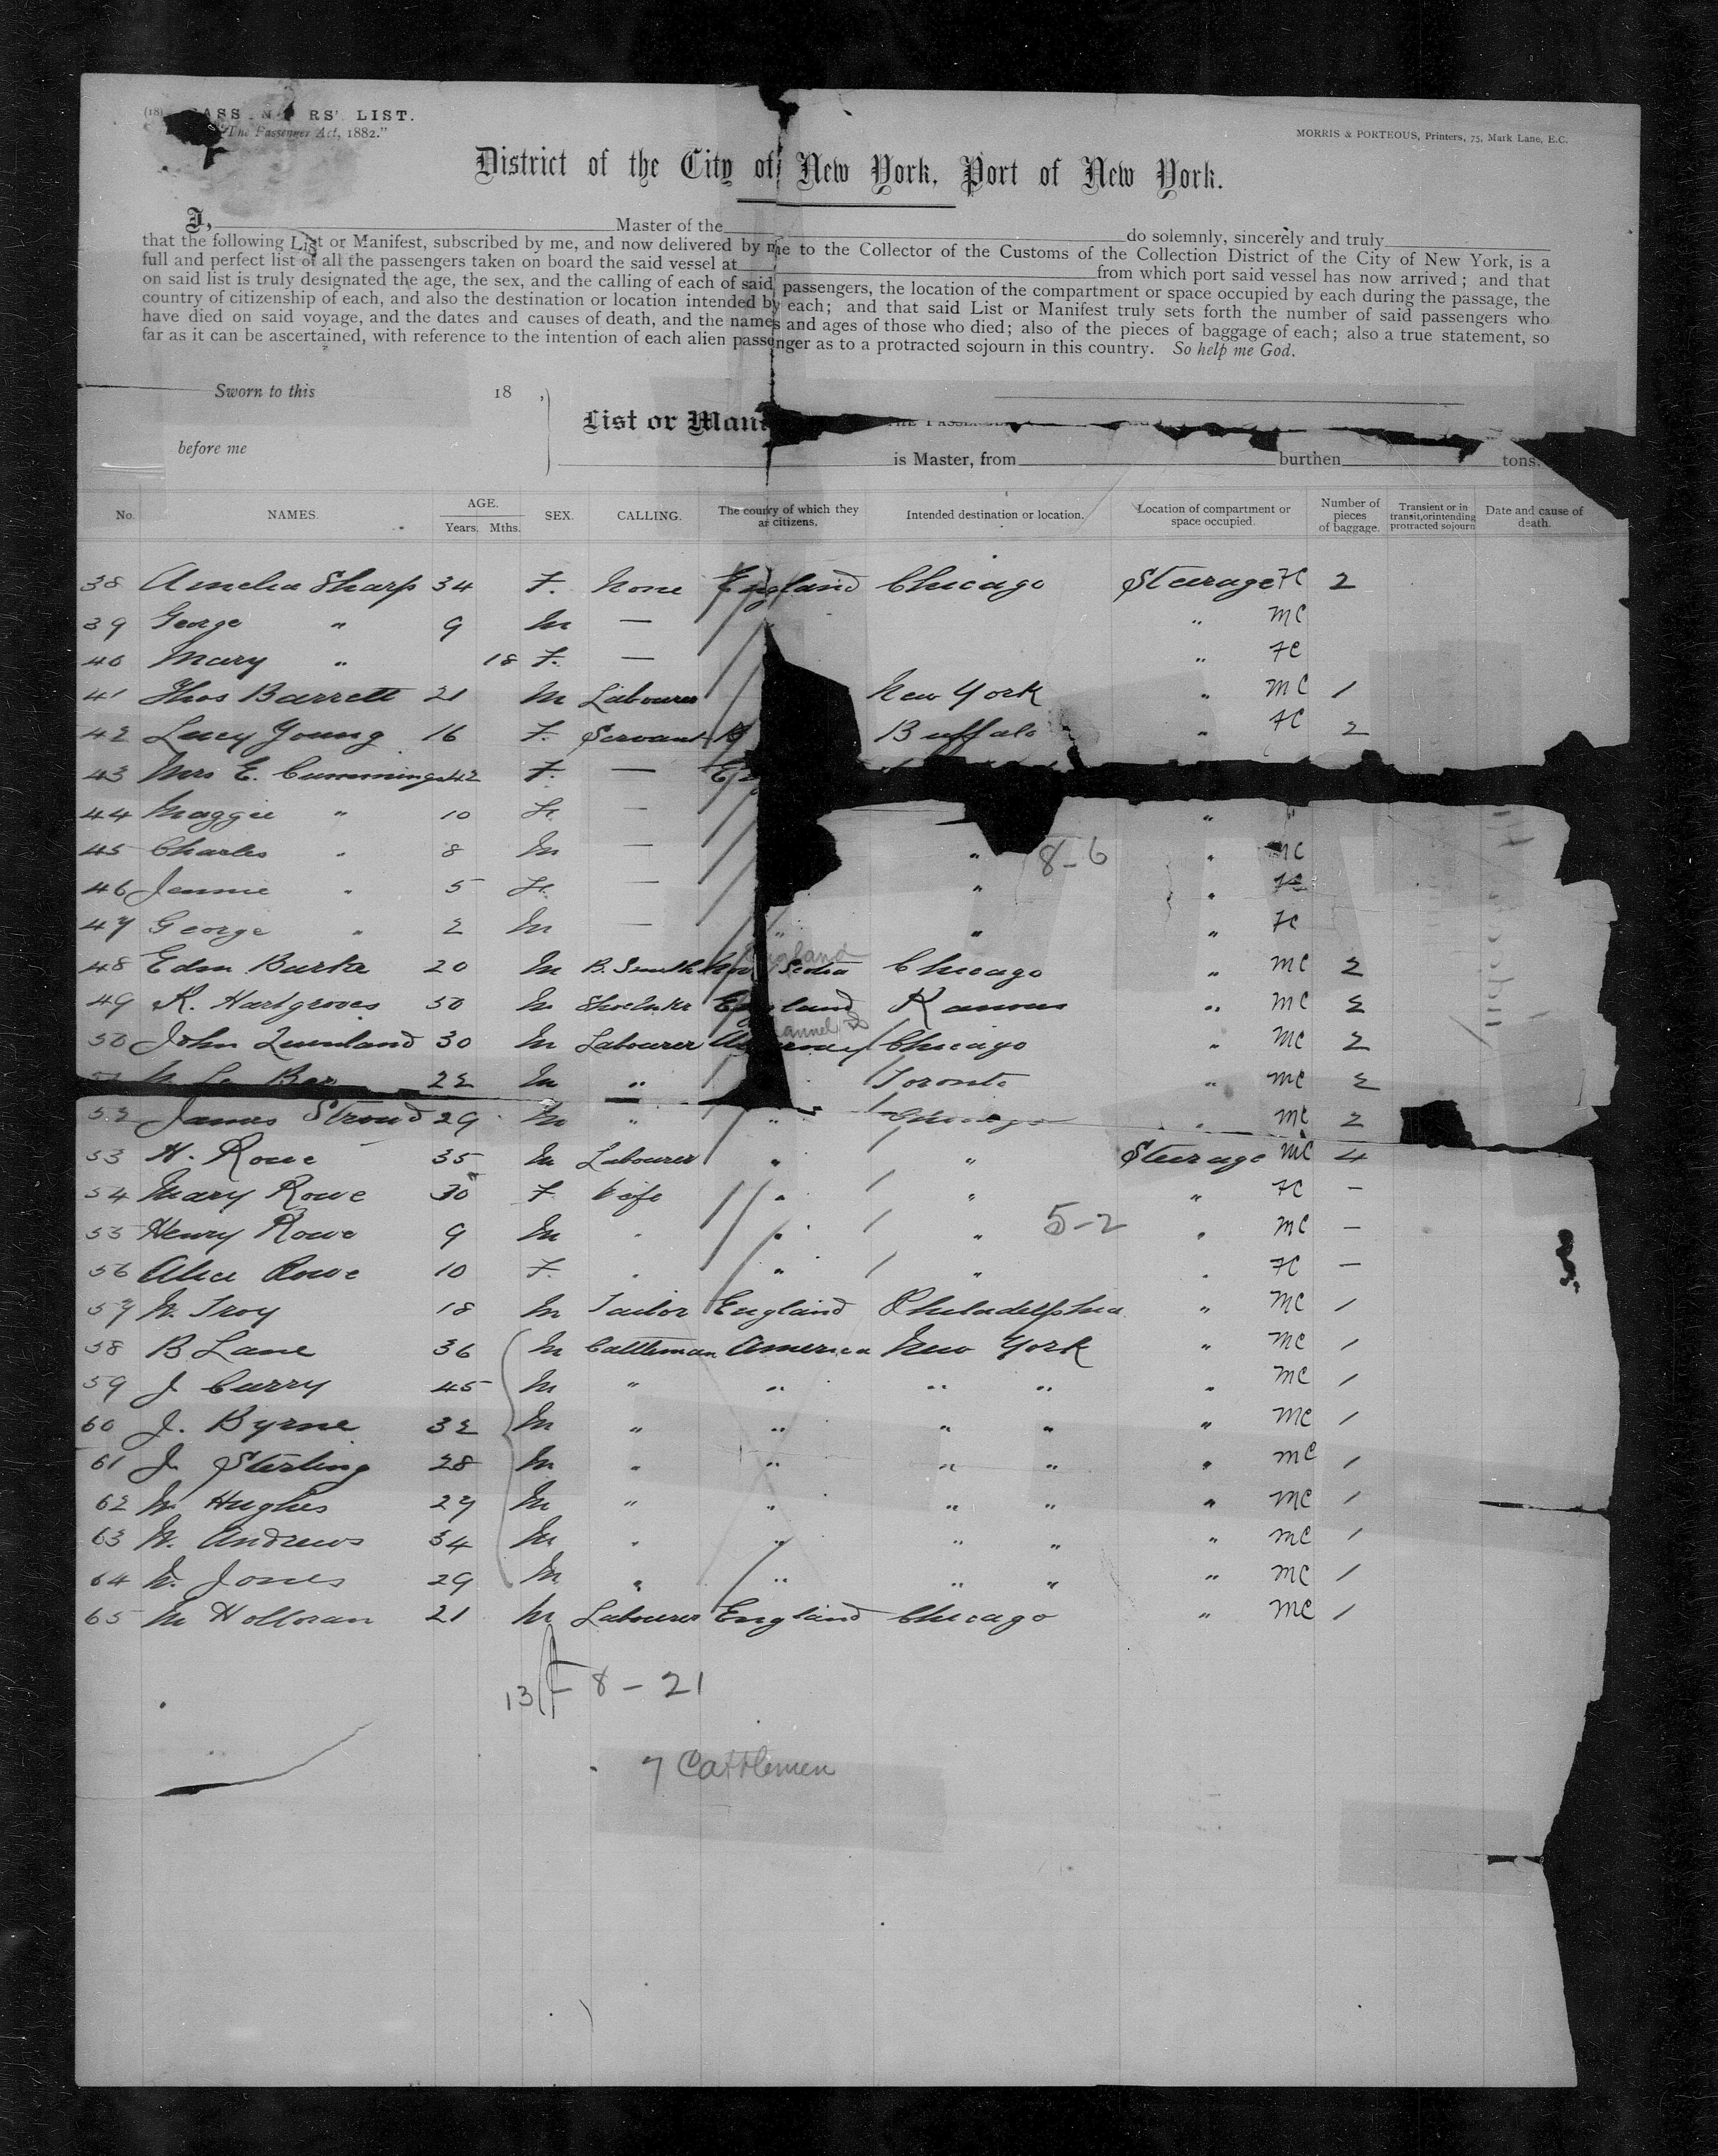 (18) PASSENGERS' LIST.
"The Passenger Act, 1882."
MORRIS & PORTEOUS, Printers, 75, Mark Lane, E.C.
District of the City of New York, Port of New York.
I, Master of the do solemnly, sincerely and truly
that the following List or Manifest, subscribed by me, and now delivered by me to the Collector of the Customs of the Collection District of the City of New York, is a
full and perfect list of all the passengers taken on board the said vessel at from which port said vessel has now arrived; and that
on said list is truly designated the age, the sex, and the calling of each of said passengers, the location of the compartment or space occupied by each during the passage, the
country of citizenship of each, and also the destination or location intended by each; and that said List or Manifest truly sets forth the number of said passengers who
have died on said voyage, and the dates and causes of death, and the names and ages of those who died; also of the pieces of baggage of each; also a true statement, so
far as it can be ascertained, with reference to the intention of each alien passenger as to a protracted sojourn in this country. So help me God.
Sworn to this 18 ,
List or Mani
before me
is Master, from burthen tons.
No. NAMES. AGE. Years. Mths. SEX. CALLING. The country of which they are citizens. Intended destination or location. Location of compartment or space occupied. Number of pieces of baggage. Transient or in transit, or intending protracted sojourn Date and cause of death.
38 Amelia Sharp 34 F. None England Chicago Steerage FC 2
39 George " 9 M — " MC
40 Mary " 18 F. — " FC
41 Thos Barrett 21 M Labourer New York " MC 1
42 Lucy Young 16 F. Servant Buffalo " FC 2
43 Mrs E. Cummings 42 F. —
44 Maggie " 10 F. — "
45 Charles " 8 M — " 8-6 " MC
46 Jennie " 5 F. — " " FC
47 George " 2 M — " " " FC
England
48 Edm Burke 20 M B. Smith Nova Scotia Chicago " MC 2
49 R. Hartgroves 50 M Shoemkr England Kansas " MC 2
Channel Is
50 John Quinland 30 M Labourer Chicago " MC 2
Le Ber 22 M " Toronto " MC 2
52 James Stroud 29 M " " Chicago " MC 2
53 H. Rowe 35 M Labourer " " Steerage MC 4
54 Mary Rowe 30 F. Wife " " " FC —
55 Henry Rowe 9 M " " " 5-2 " MC —
56 Alice Rowe 10 F. " " " " FC —
57 W. Troy 18 M Tailor England Philadelphia " MC 1
58 B Lane 36 M Cattleman America New York " MC 1
59 J Curry 45 M " " " " " MC 1
60 J. Byrne 32 M " " " " " MC 1
61 J. Sterling 28 M " " " " " MC 1
62 W. Hughes 27 M " " " " " MC 1
63 W. Andrews 34 M " " " " " MC 1
64 W. Jones 29 M " " " " " MC 1
65 M Holloran 21 M Labourer England Chicago " MC 1
13 F 8 - 21
7 Cattlemen